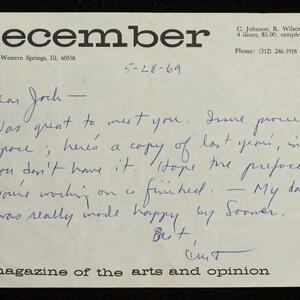 ecember
C. Johnson, R. Wilson
4 issues, $5.00; sample
Western Springs, Ill, 60558
Phone: (312) 246-1918
5-28-69
ear Josh —
was great to meet you. Issue
here's a copy of last year's, in
you don't have it. Hope the preface
you're working on is finished. — My da
was really made happy by Sooner.
Best
Curt
magazine of the arts and opinion